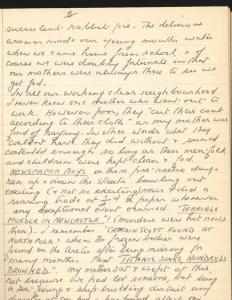 succulent rabbit pie. The delicious
aromas made our young mouths water
when we came home from school, & of
course we were doubly fortunate in that
our mothers were always there to see we
got fed.
In all our working class neighbourhood
I never knew one mother who went out to
work. However poor, they "cut their coat
according to their cloth" as my mother was
fond of saying. In other words what they
couldn't have they did without & seemed
contented enough so long as their menfolk
and children were kept clean & fed.
NEWSPAPER BOYS in those pre-radio days
ran up & down the streets bawling out
exciting (& not so exciting) news & did a
roaring trade at ½d a paper whenever
any exceptional event occurred "TERRIBLE
MURDER IN NEWCASTLE" (murders were hot news
then). I remember "CAPTAIN SCOTT FOUND AT
NORTH POLE" when the frozen bodies were
found in the Arctic after being missing for
many months. Then "TITANIC SINKS HUNDREDS
DROWNED". My mother & I wept at that
not because we had lost anyone but being
a ship building district any